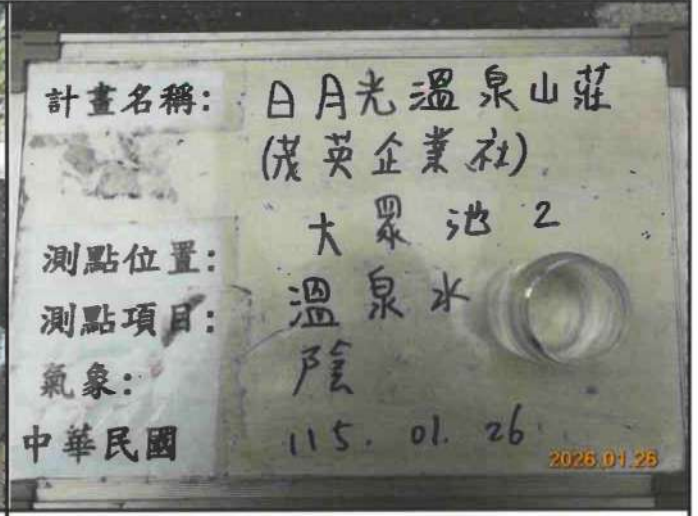 計畫名稱: 日月光溫泉山莊
(茂英企業社)
測點位置: 大眾池2
測點項目: 溫泉水
氣象: 陰
中華民國 115.01.26
2026.01.26